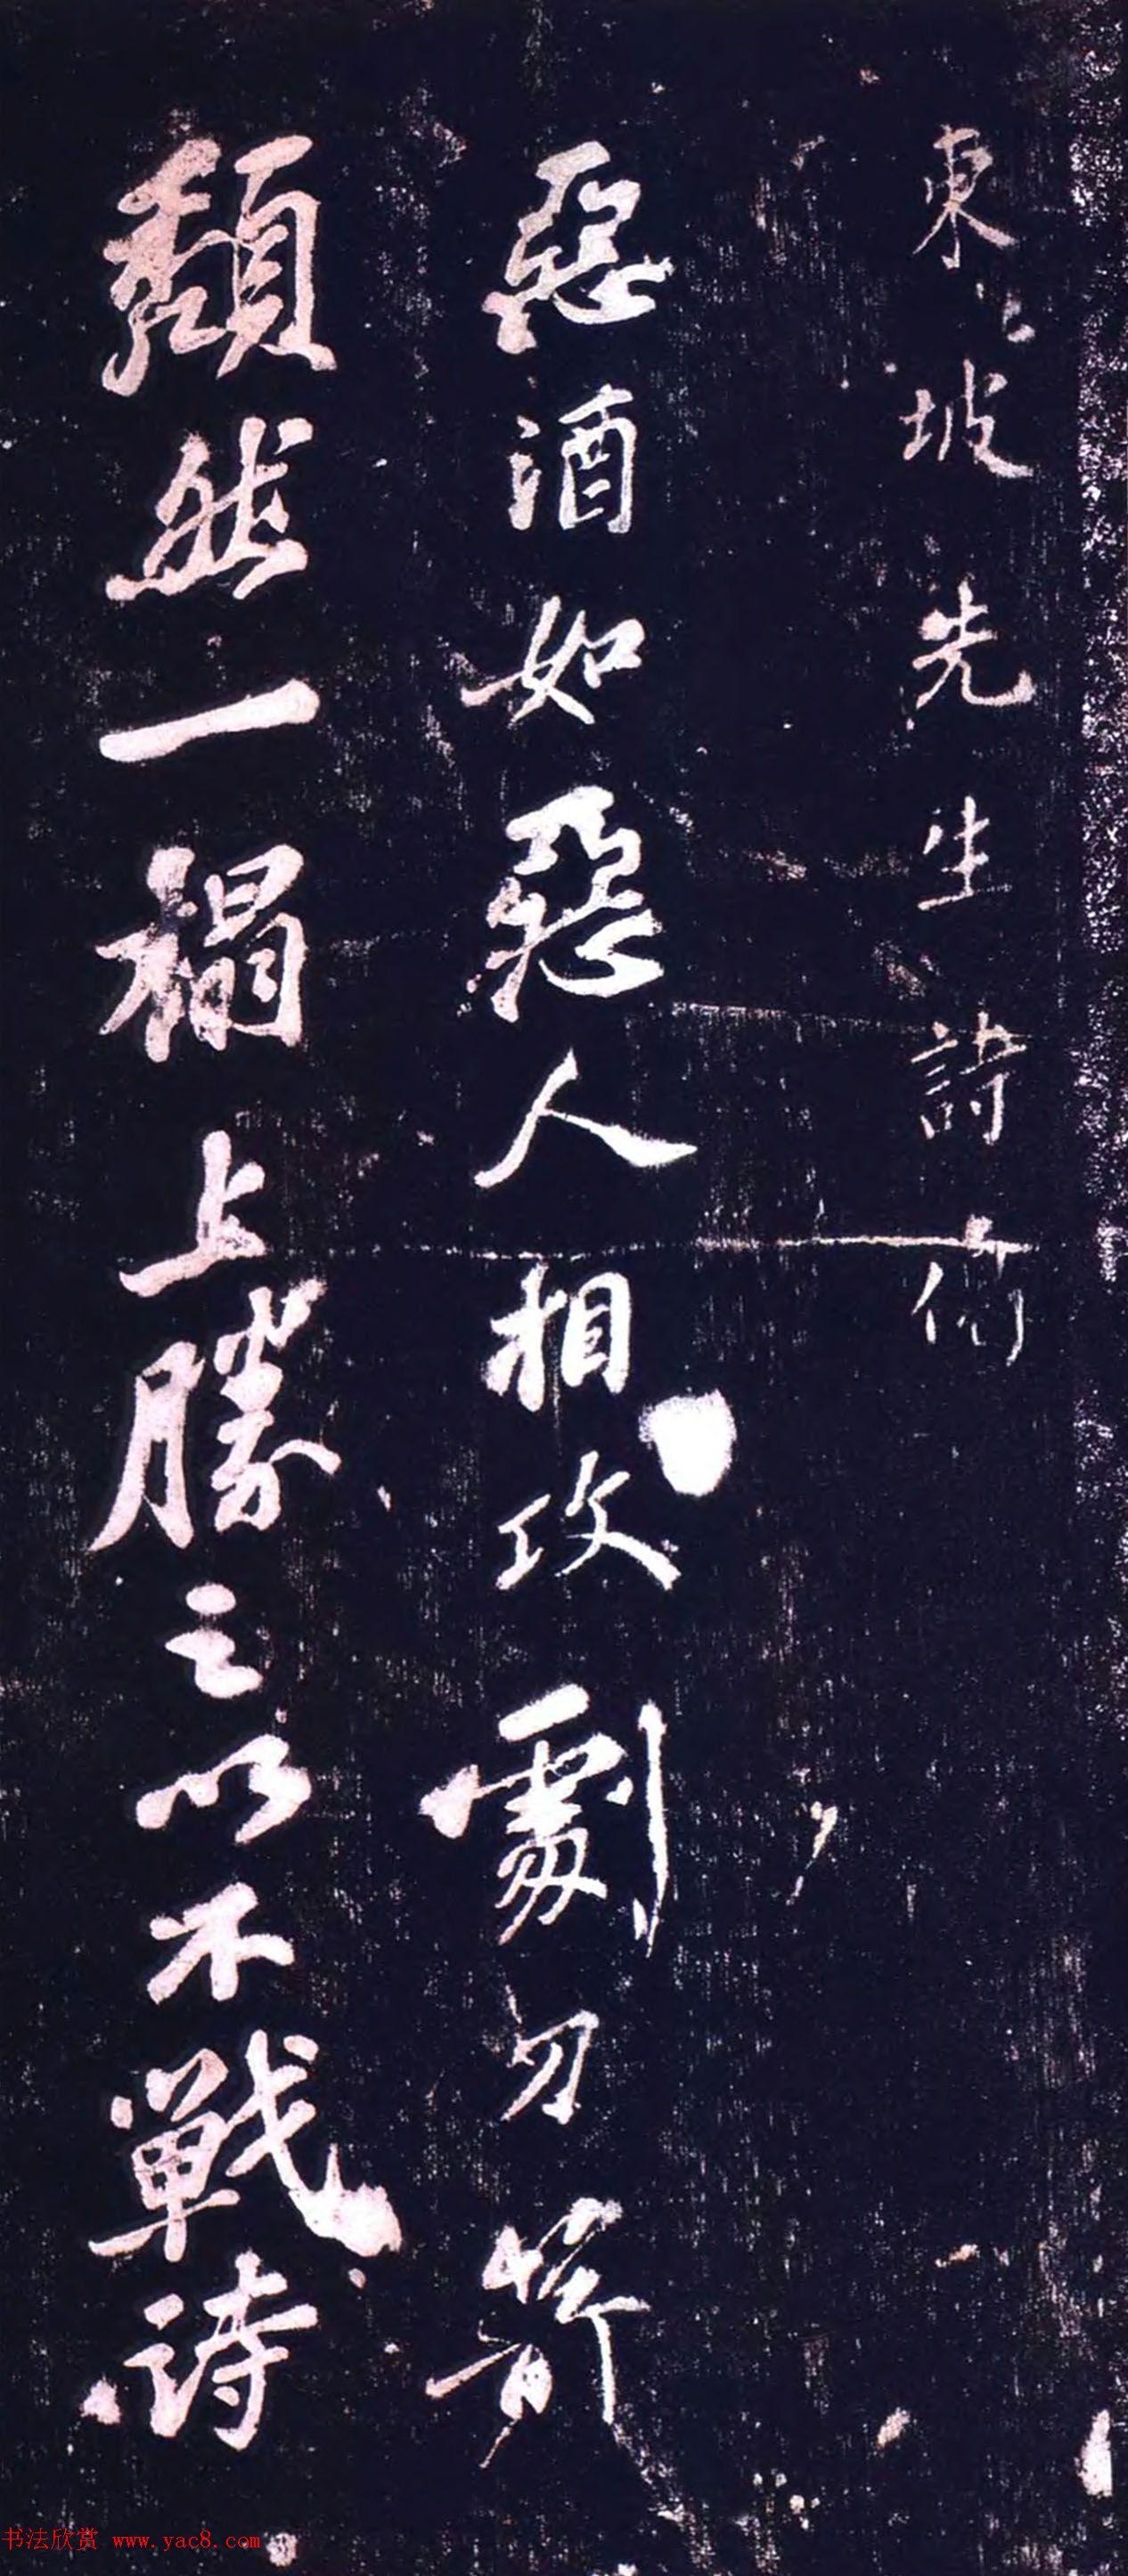 東坡先生詩
惡酒如惡人相攻劇刀箭
頹然一榻上勝之以不戰詩
书法欣赏 www.yac8.com